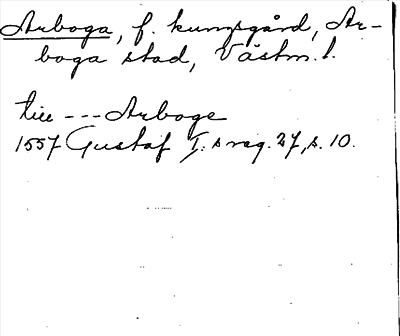 Arboga, f. kungsgård, Ar-
boga stad, Västm. l.
till --- Arboge
1557 Gustaf I:s reg. 27, s. 10.